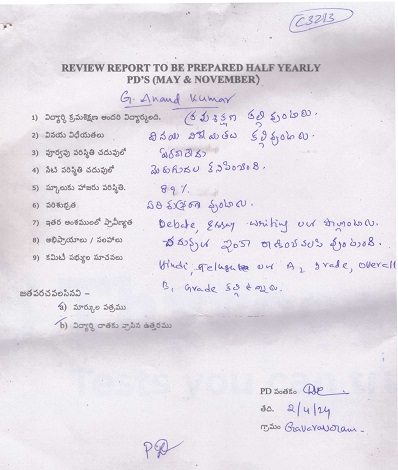 C3213
REVIEW REPORT TO BE PREPARED HALF YEARLY
PD'S (MAY & NOVEMBER)
G. Anand Kumar
1) విద్యార్థి క్రమశిక్షణ అందరి విద్యార్థులది. క్రమశిక్షణ కల్గి వుంటాడు.
2) వినయ విధేయతలు వినయ విధేయతలు కల్గి వుంటాడు.
3) పూర్వపు పరిస్థితి చదువులో
4) నేటి పరిస్థితి చదువులో మెరుగుదల కనిపించింది.
5) స్కూలుకు హాజరు పరిస్థితి. 89%
6) పరిశుభ్రత పరిశుభ్రంగా వుంటాడు.
7) ఇతర అంశములలో ప్రావీణ్యత Debate, Essay writing లలో పాల్గొంటాడు.
8) అభిప్రాయాలు / సలహాలు చదువులో ఇంకా రాణించవలసి వుంటుంది.
9) కమిటీ సభ్యుల సూచనలు Hindi, Telugu లలో A2 grade, overall
B1 Grade కల్గి ఉన్నాడు.
జతపరచవలసినవి –
a) మార్కుల పత్రము
b) విద్యార్థి దాతకు వ్రాసిన ఉత్తరము
PD సంతకం
తేది. 2/4/24
గ్రామం Gavaravaram.
PD